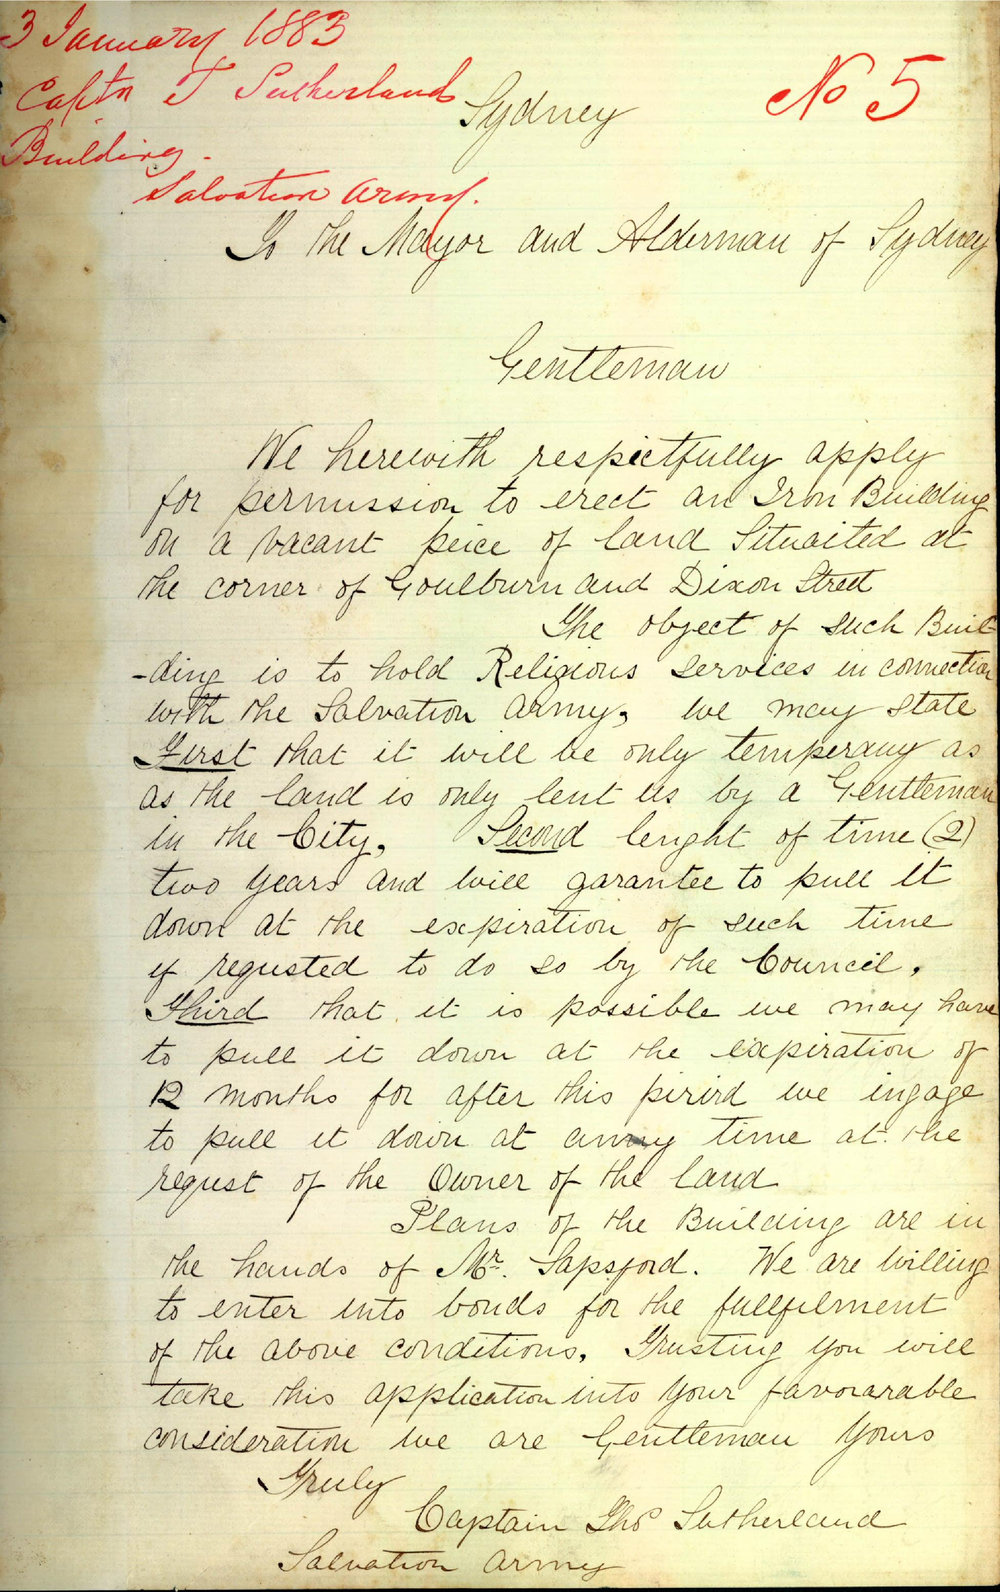 3 January 1883
Captn T Sutherland
Building.
Salvation Army.
No 5
Sydney
To the Mayor and Alderman of Sydney
Gentleman
We herewith respectfully apply
for permission to erect an Iron Building
on a vacant peice of land Situaited at
the corner of Goulburn and Dixon Street
The object of such Buil-
-ding is to hold Religious services in connection
with the Salvation Army, we may state
First that it will be only temperary as
as the land is only lent us by a Gentleman
in the City, Second lenght of time (2)
two years and will garantee to pull it
down at the expiration of such time
if requsted to do so by the Council,
Third that it is possible we may have
to pull it down at the expiration of
12 months for after this pirird we ingage
to pull it down at anny time at the
requst of the Owner of the land
Plans of the Building are in
the hands of Mr. Sapsford. We are willing
to enter into bonds for the fullfilment
of the above conditions, Trusting you will
take this application into your favorarable
consideration we are Gentleman Yours
Truly
Captain Thos Sutherland
Salvation Army